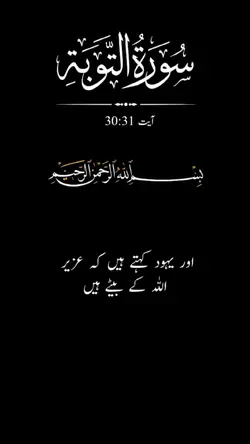 سُورَةُ التَّوبَةِ
آیت 30:31
بِسْمِ اللهِ الرَّحْمٰنِ الرَّحِيْمِ
اور یہود کہتے ہیں کہ عزیر
اللہ کے بیٹے ہیں